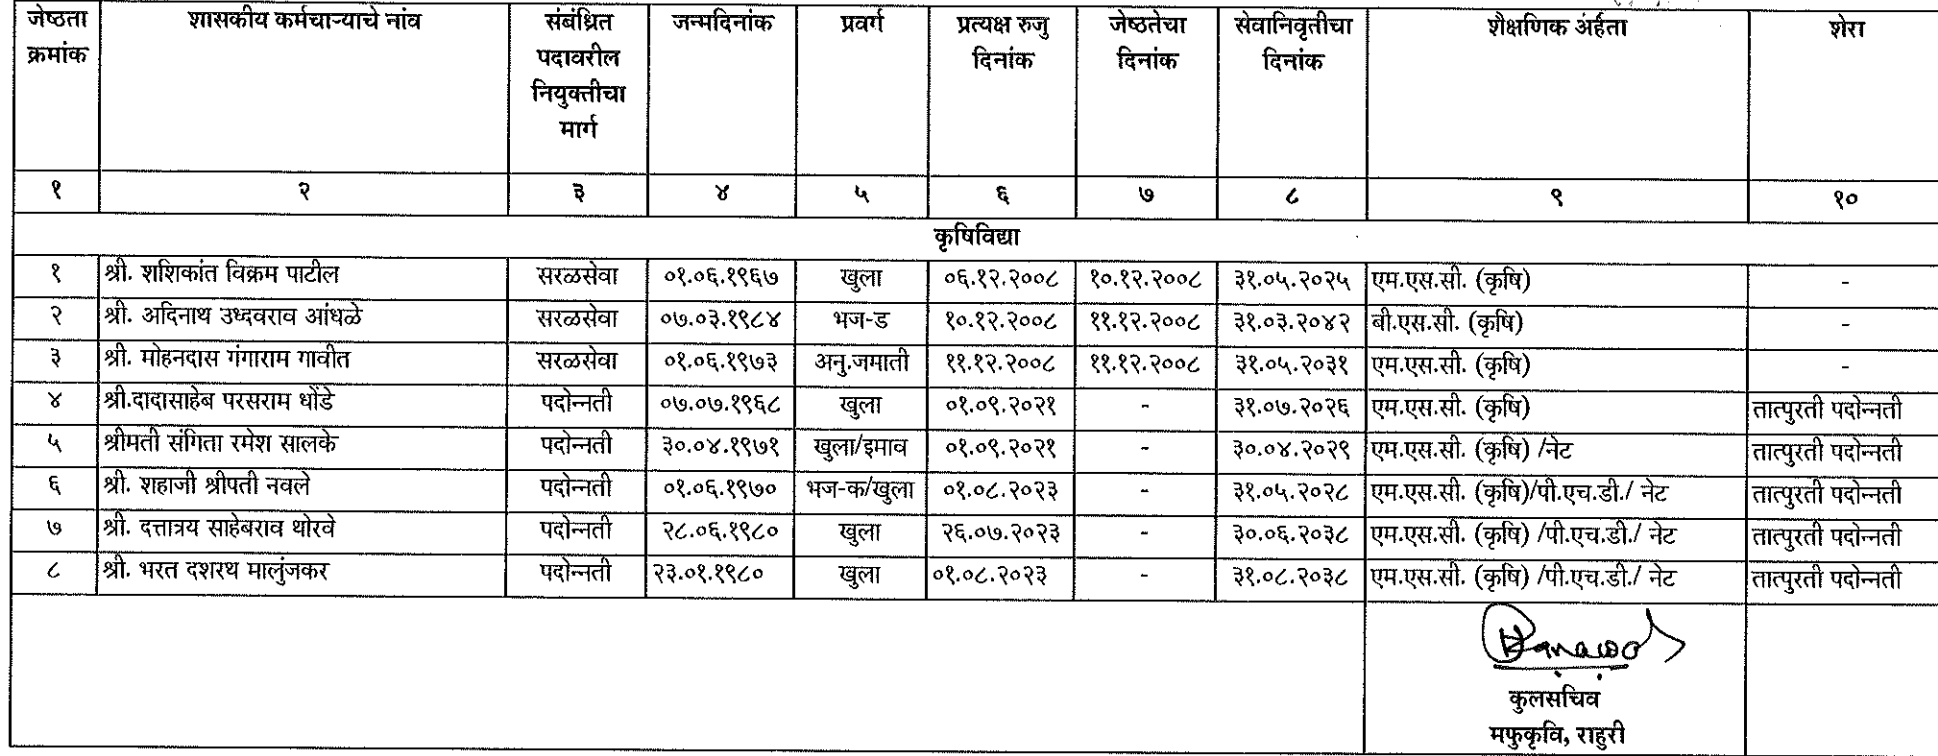 जेष्ठता क्रमांक | शासकीय कर्मचाऱ्याचे नांव | संबंध्रित पदावरील नियुक्तीचा मार्ग | जन्मदिनांक | प्रवर्ग | प्रत्यक्ष रुजु दिनांक | जेष्ठतेचा दिनांक | सेवानिवृतीचा दिनांक | शैक्षणिक अर्हता | शेरा
१ | २ | ३ | ४ | ५ | ६ | ७ | ८ | ९ | १०
कृषिविद्या
१ | श्री. शशिकांत विक्रम पाटील | सरळसेवा | ०१.०६.१९६७ | खुला | ०६.१२.२००८ | १०.१२.२००८ | ३१.०५.२०२५ | एम.एस.सी. (कृषि) | -
२ | श्री. अदिनाथ उध्दवराव आंधळे | सरळसेवा | ०७.०३.१९८४ | भज-ड | १०.१२.२००८ | ११.१२.२००८ | ३१.०३.२०४२ | बी.एस.सी. (कृषि) | -
३ | श्री. मोहनदास गंगाराम गावीत | सरळसेवा | ०१.०६.१९७३ | अनु.जमाती | ११.१२.२००८ | ११.१२.२००८ | ३१.०५.२०३१ | एम.एस.सी. (कृषि) | -
४ | श्री.दादासाहेब परसराम धोंडे | पदोन्नती | ०७.०७.१९६८ | खुला | ०१.०९.२०२१ | - | ३१.०७.२०२६ | एम.एस.सी. (कृषि) | तात्पुरती पदोन्नती
५ | श्रीमती संगिता रमेश सालके | पदोन्नती | ३०.०४.१९७१ | खुला/इमाव | ०१.०९.२०२१ | - | ३०.०४.२०२९ | एम.एस.सी. (कृषि) /नेट | तात्पुरती पदोन्नती
६ | श्री. शहाजी श्रीपती नवले | पदोन्नती | ०१.०६.१९७० | भज-क/खुला | ०१.०८.२०२३ | - | ३१.०५.२०२८ | एम.एस.सी. (कृषि)/पी.एच.डी./ नेट | तात्पुरती पदोन्नती
७ | श्री. दत्तात्रय साहेबराव थोरवे | पदोन्नती | २८.०६.१९८० | खुला | २६.०७.२०२३ | - | ३०.०६.२०३८ | एम.एस.सी. (कृषि) /पी.एच.डी./ नेट | तात्पुरती पदोन्नती
८ | श्री. भरत दशरथ मालुंजकर | पदोन्नती | २३.०१.१९८० | खुला | ०१.०८.२०२३ | - | ३१.०८.२०३८ | एम.एस.सी. (कृषि) /पी.एच.डी./ नेट | तात्पुरती पदोन्नती
कुलसचिव
मफुकृवि, राहुरी